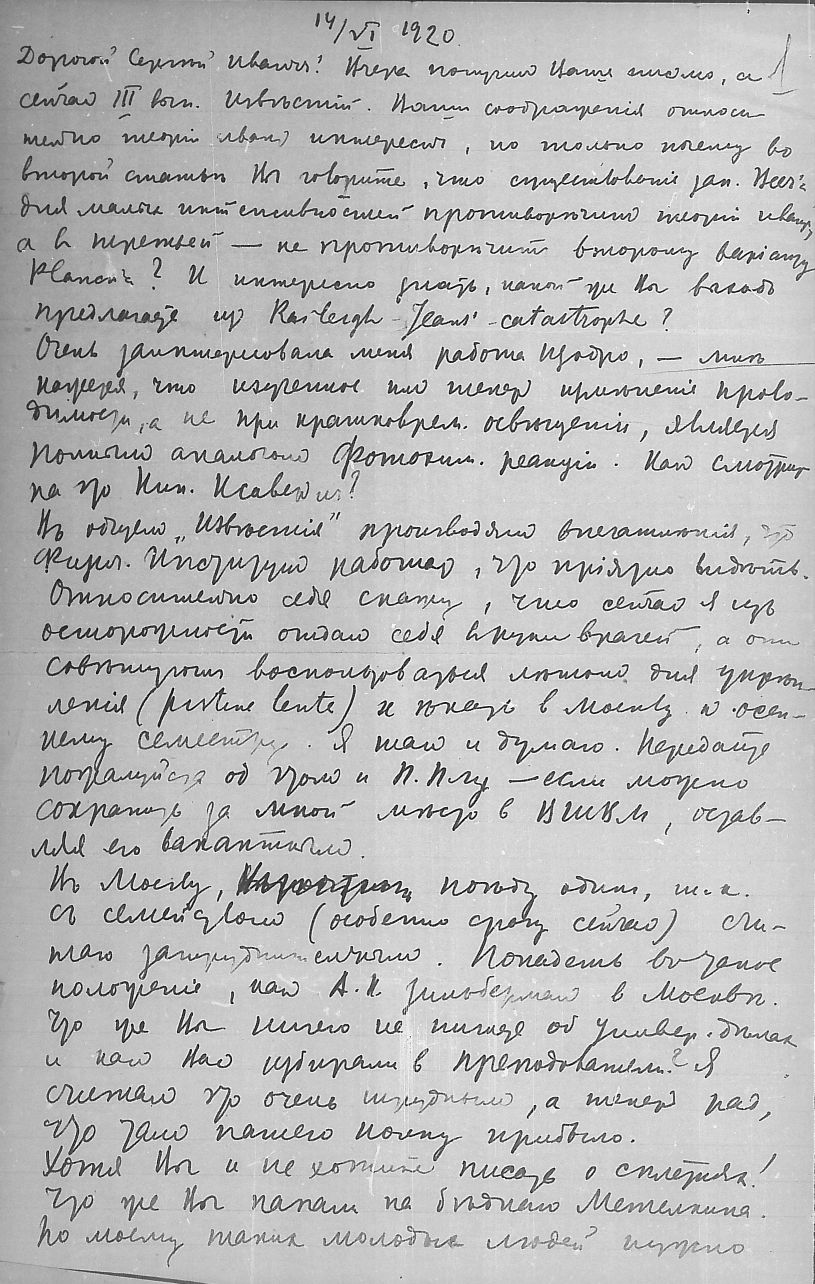 14/VI 1920.
Дорогой Сергей Иванович! Вчера получил Ваше письмо, а 1
сейчас III вып. Извѣстій. Ваши соображенія относи-
тельно теоріи квант интересны, но только почему во
второй статьѣ Вы говорите, что существованіе зак. Beer'а
для малых интенсивностей противорѣчит теоріи квант,
а в третьей — не противорѣчит второму варіанту
Planck'а? И интересно знать, какой же Вы выход
предлагаете из Rayleigh-Jeans'-catastrophe?
Очень заинтересовала меня работа — мнѣ
кажется, что изученное им теперь измѣненіе прово-
димости, а не при кратковрем. освѣщеніи, является
полным аналогом фотохим. реакціи. Как смотрит
на это Ник.
Въ общем „Извѣстія" производят впечатлѣніе, что
Физич. Институт работает, что пріятно видѣть.
Относительно себя скажу, что сейчас я изъ
осторожности отдал себя в руки врачей, а они
совѣтуют воспользоваться лѣтом для укрѣп-
ленія ( lente) и ѣхать в Москву к осен-
нему семестру. Я так и думаю. Передайте
пожалуйста об этом и П. П-чу — если можно
сохранить за мной мѣсто в , остав-
ляя его вакантным.
Въ Москву, поѣду один, т.к.
съ семейством (особенно сразу сейчас) счи-
таю затруднительным. Попадешь в такое
положеніе, как А. К. Зильберман в Москвѣ.
Что же Вы ничего не пишете об универ. дѣлах
и как Вас избирали в преподаватели? Я
считал это очень трудным, а теперь рад,
что там нашего полку прибыло.
Хотя Вы и не хотите писать о сплетнях!
Что же Вы напали на бѣднаго Метелкина.
По моему таких молодых людей нужно